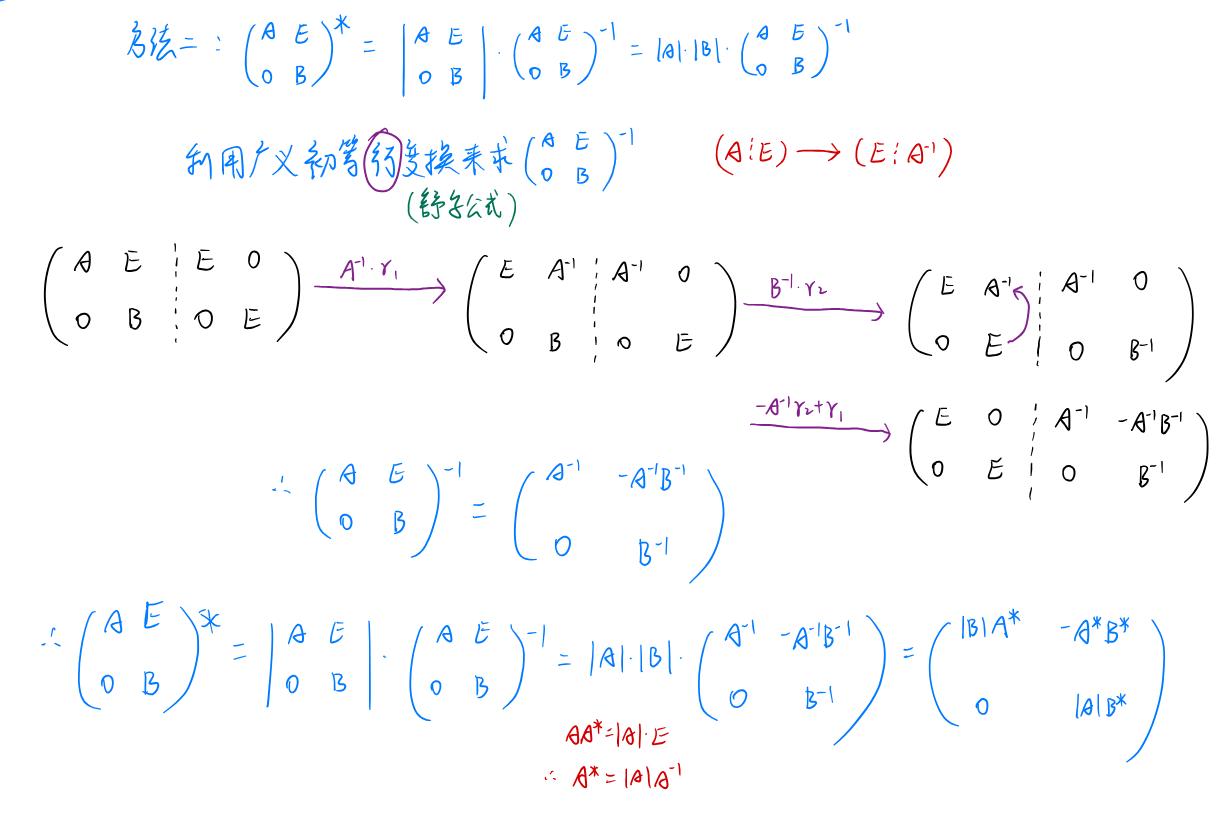 方法二: (A E; O B)* = |A E; O B| · (A E; O B)⁻¹ = |A|·|B|·(A E; O B)⁻¹
利用广义初等行变换来求 (A E; O B)⁻¹ (A⋮E) → (E⋮A⁻¹)
(舒尔公式)
(A E ⋮ E O; O B ⋮ O E) —A⁻¹·r₁→ (E A⁻¹ ⋮ A⁻¹ O; O B ⋮ O E) —B⁻¹·r₂→ (E A⁻¹ ⋮ A⁻¹ O; O E ⋮ O B⁻¹)
—-A⁻¹r₂+r₁→ (E O ⋮ A⁻¹ -A⁻¹B⁻¹; O E ⋮ O B⁻¹)
∴ (A E; O B)⁻¹ = (A⁻¹ -A⁻¹B⁻¹; O B⁻¹)
∴ (A E; O B)* = |A E; O B| · (A E; O B)⁻¹ = |A|·|B|·(A⁻¹ -A⁻¹B⁻¹; O B⁻¹) = (|B|A* -A*B*; O |A|B*)
AA*=|A|·E
∴ A*=|A|A⁻¹